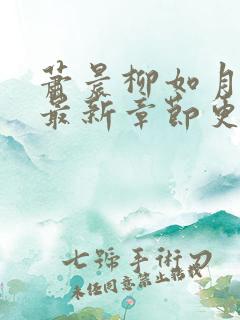 萧晨柳如月
最新章节免
七号手术刀
未经同意禁止转载